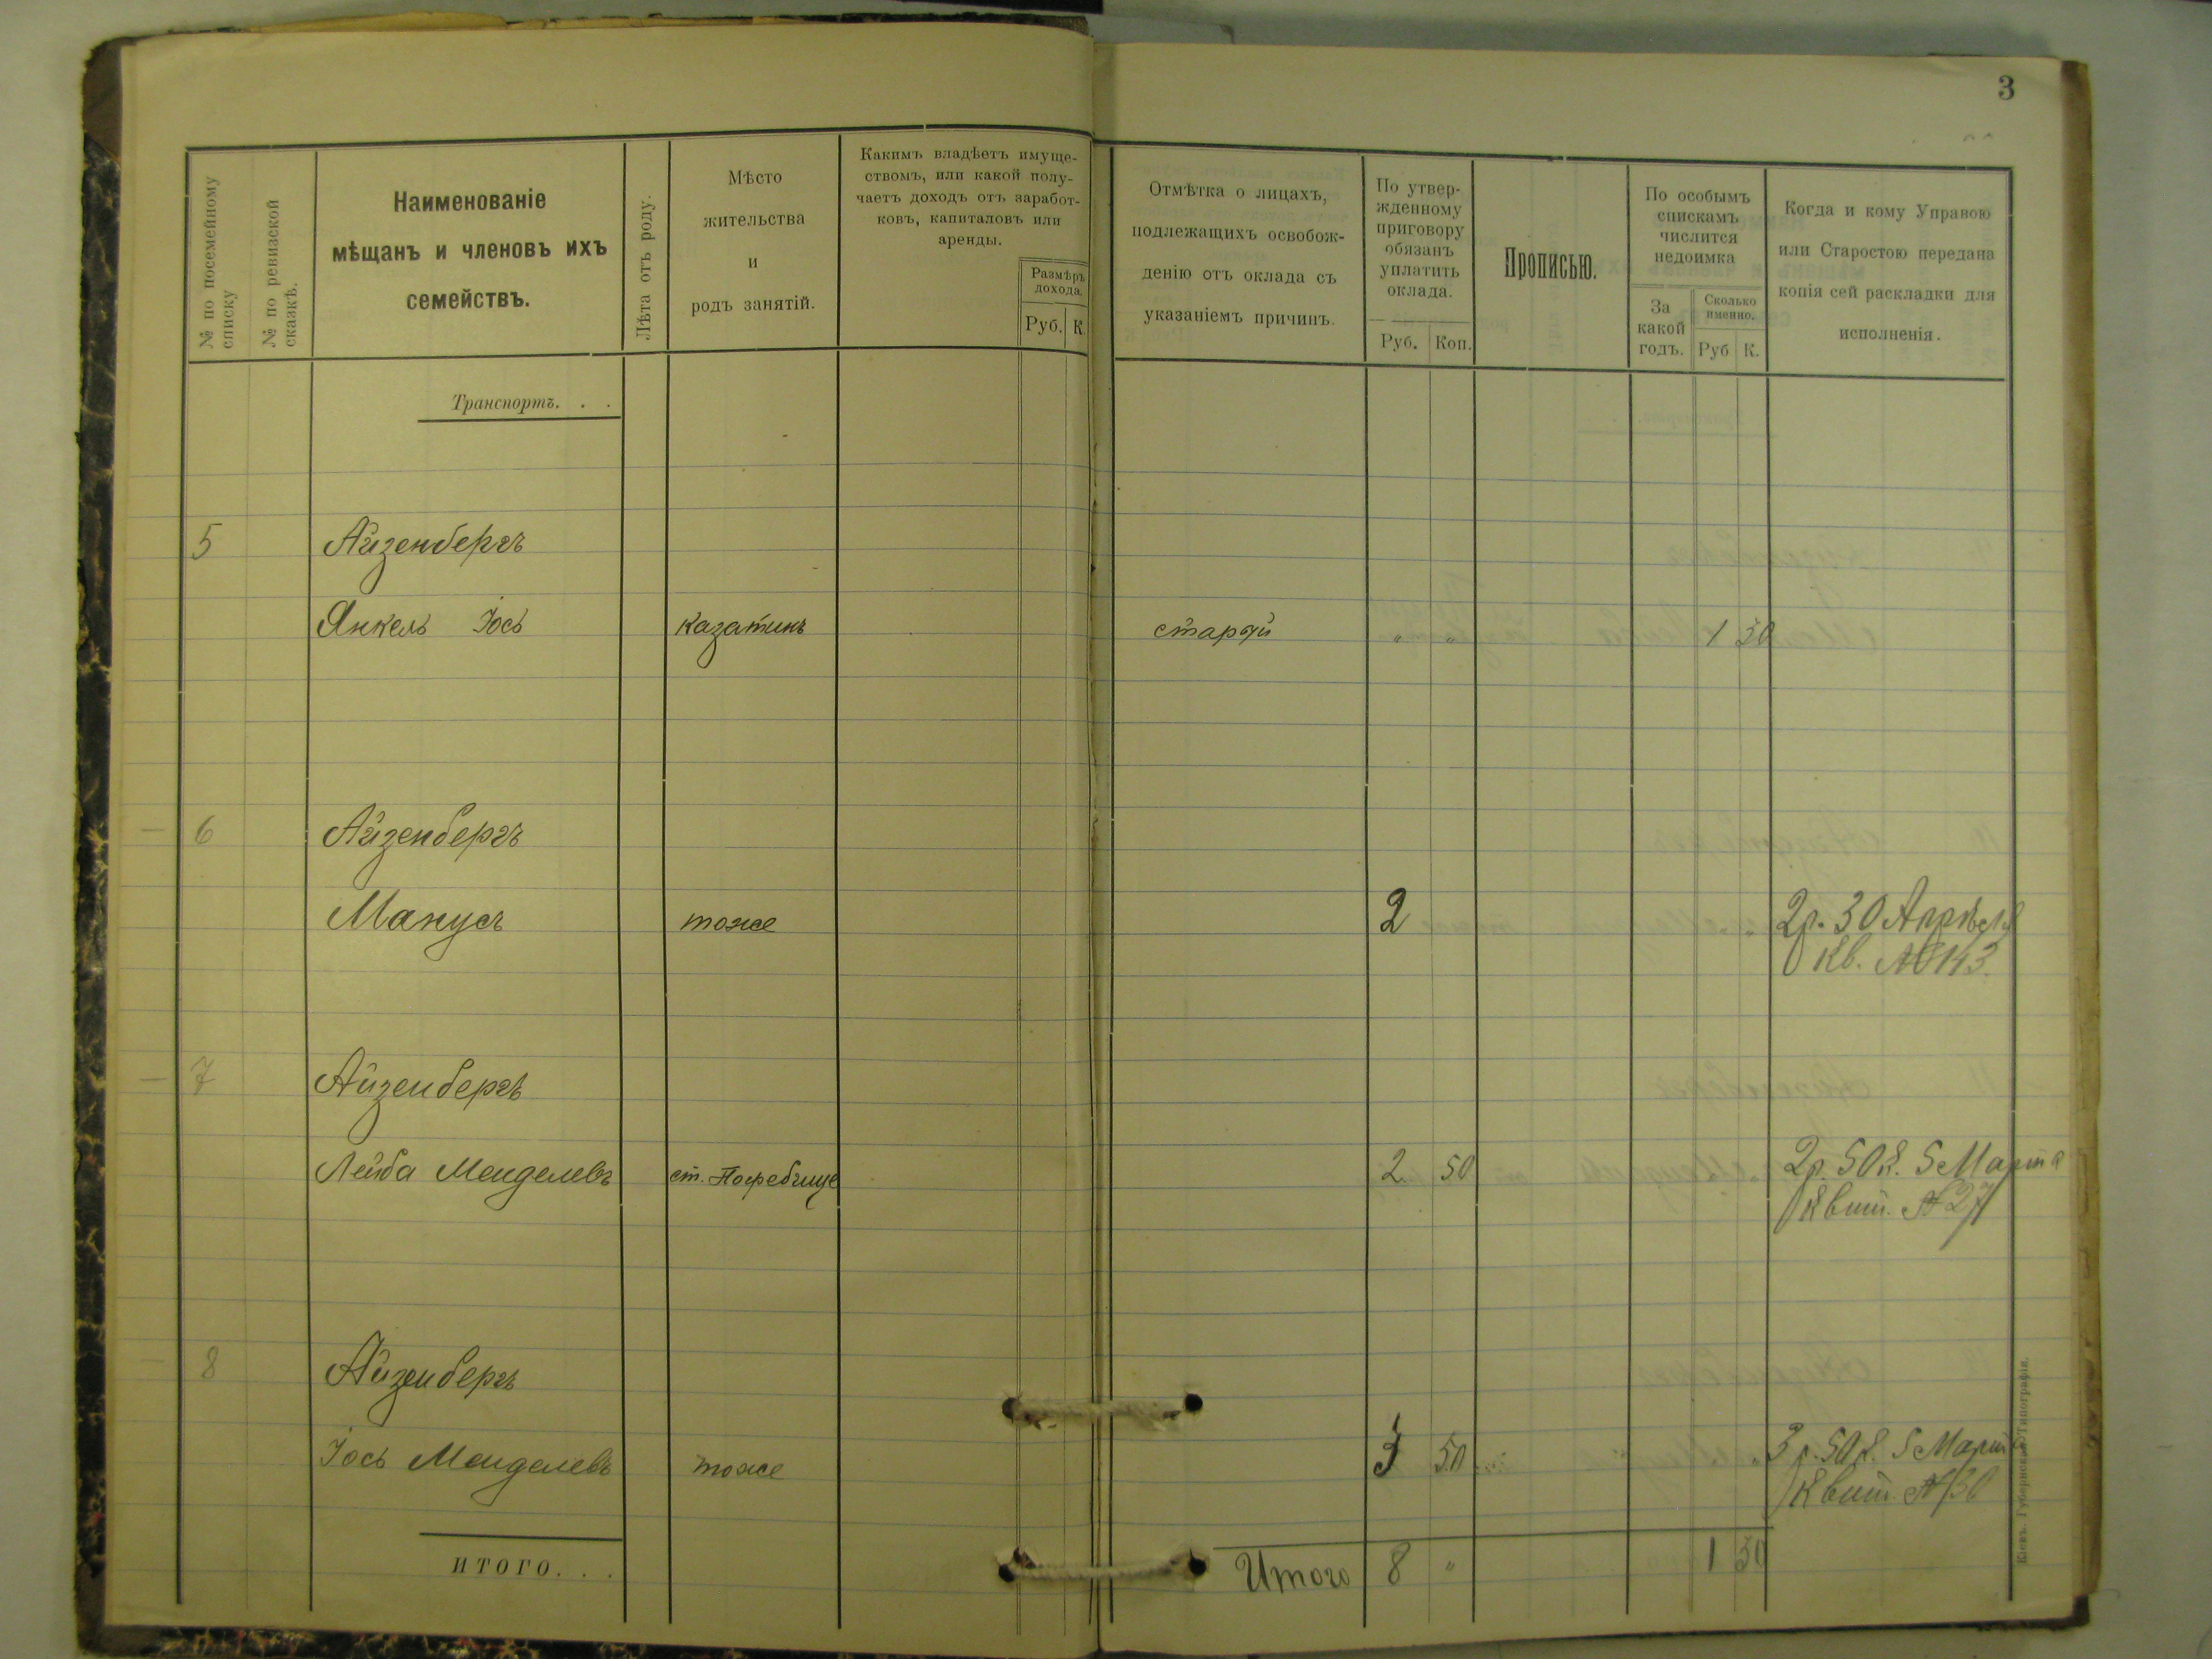 3
№ по посемейному
списку
№ по ревизской
сказкѣ.
Наименованіе
мѣщанъ и членовъ ихъ
семействъ.
Лѣта отъ роду.
Мѣсто
жительства
и
родъ занятій.
Какимъ владѣетъ имуще-
ствомъ, или какой полу-
чаетъ доходъ отъ заработ-
ковъ, капиталовъ или
аренды.
Размѣръ
дохода.
Руб. К.
Отмѣтка о лицахъ,
подлежащихъ освобож-
денію отъ оклада съ
указаніемъ причинъ.
По утвер-
жденному
приговору
обязанъ
уплатить
оклада.
Руб. Коп.
Прописью.
По особымъ
спискамъ
числится
недоимка
За
какой
годъ.
Сколько
именно.
Руб К.
Когда и кому Управою
или Старостою передана
копія сей раскладки для
исполненія.
Транспортъ. . .
5 Айзенбергъ
Янкель Іось казатинъ старый " " 1 50
6 Айзенбергъ
Манусъ тоже 2 2р. 30 Апрѣля
Кв. № 143.
7 Айзенбергъ
Лейба Менделевъ ст. Погребище 2 50 2р. 50к. 5 Марта
Квит. № 27
8 Айзенбергъ
Іось Менделевъ тоже 3 50 3 р. 50к. 5 Марта
Квит. № 30
ИТОГО. . .
Итого 8 " 1 50
Кіевъ. Губернская Типографія.